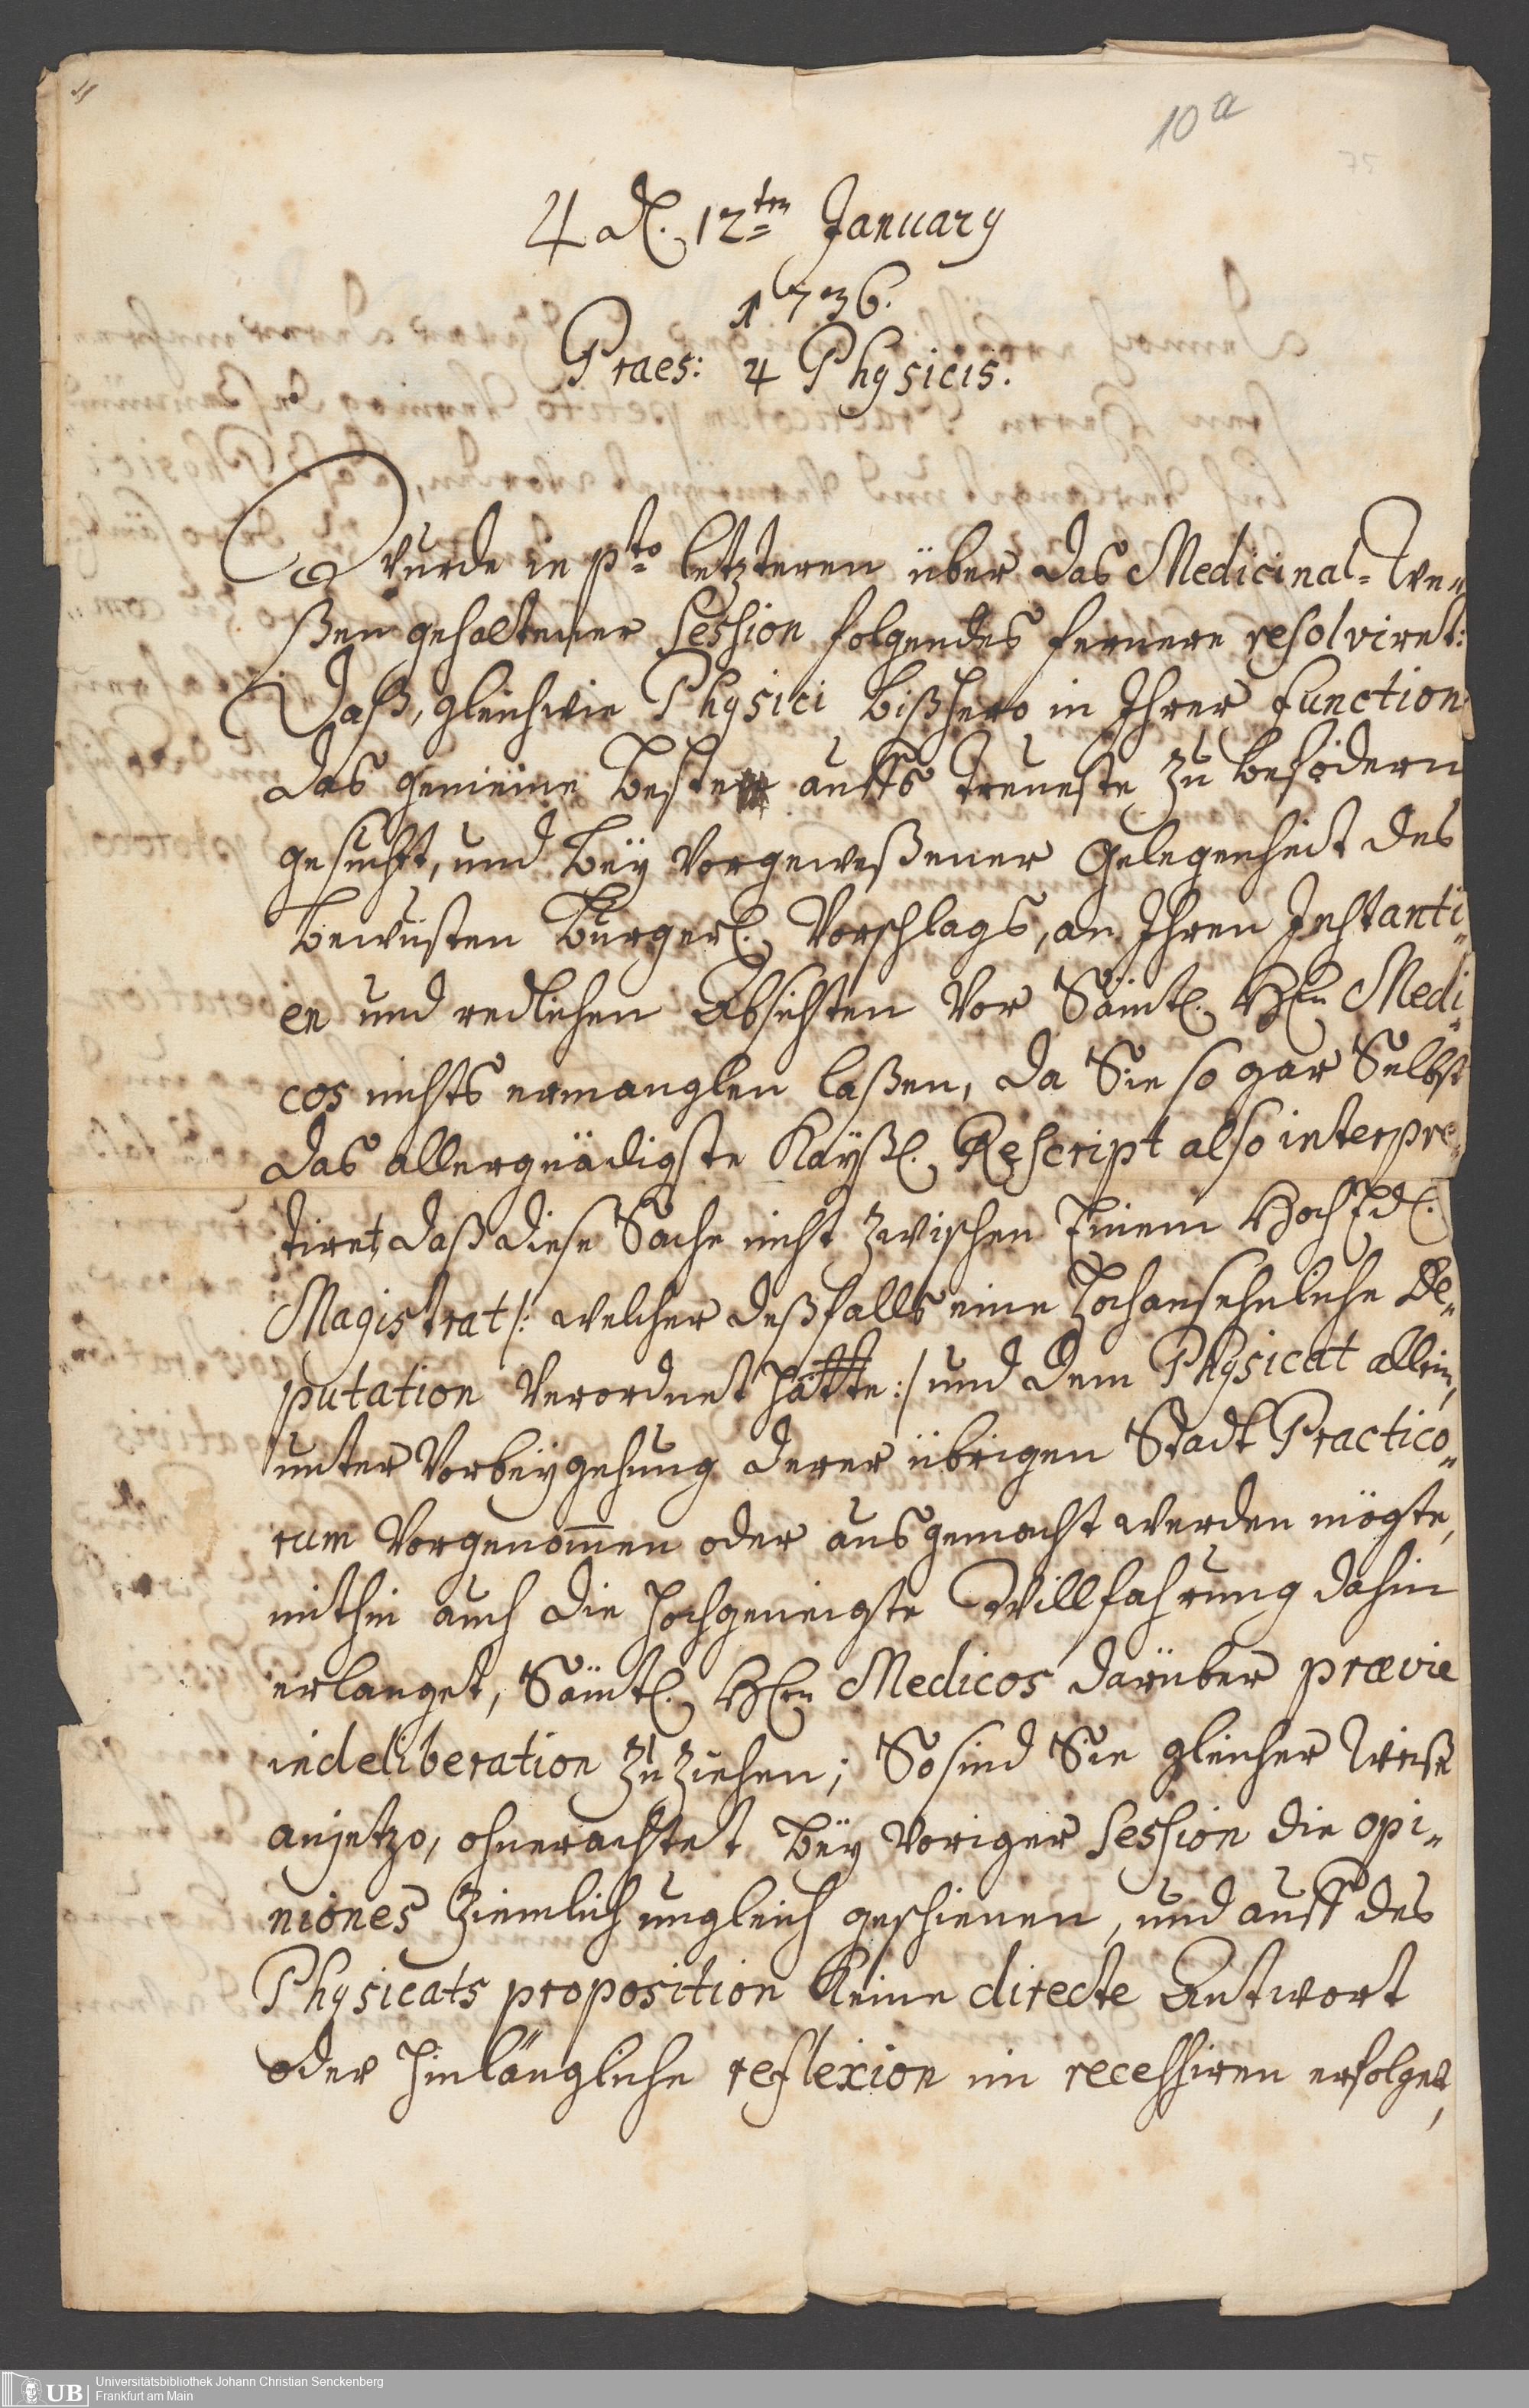 10 a
75
♃ d. 12ten January
1736.
Praes: 4 Physicis.
Wurde in pto letzteren über das Medicinal-We-
ßen gehaltener Session folgendes fernere resolviret:
Daß, gleichwie Physici bißhero in Ihrer function
das gemeine Beste auffs treueste zu befödern
gesucht, und bey vorgeweßener Gelegenheit des
bewusten Bürgerl. Vorschlags, an Ihren Instanti-
en und redlichen Absichten vor Sämtl. HEn Medi-
cos nichts ermanglen laßen, da Sie so gar Selbst
das allergnädigste Kayßl. Rescript also interpre-
tiret, daß diese Sache nicht zwischen Einem HochEdl.
Magistrat /: welcher deßfalls eine Hochansehnliche De-
putation verordnet hätte :/ und dem Physicat allein,
unter Vorbeygehung derer übrigen Stadt Practico-
rum vorgenom̅en oder ausgemacht werden mögte,
mithin auch die hochgeneigte Willfahrung dahin
erlanget, Sämtl. HEn Medicos darüber prævie
in deliberation zu ziehen; So sind Sie gleicher Weiße
anjetzo, ohnerachtet bey voriger Session die opi-
niones ziemlich ungleich geschienen, und auff des
Physicats proposition keine directe Antwort
oder hinlängliche reflexion im recessiren erfolget,
UB
Universitätsbibliothek Johann Christian Senckenberg
Frankfurt am Main